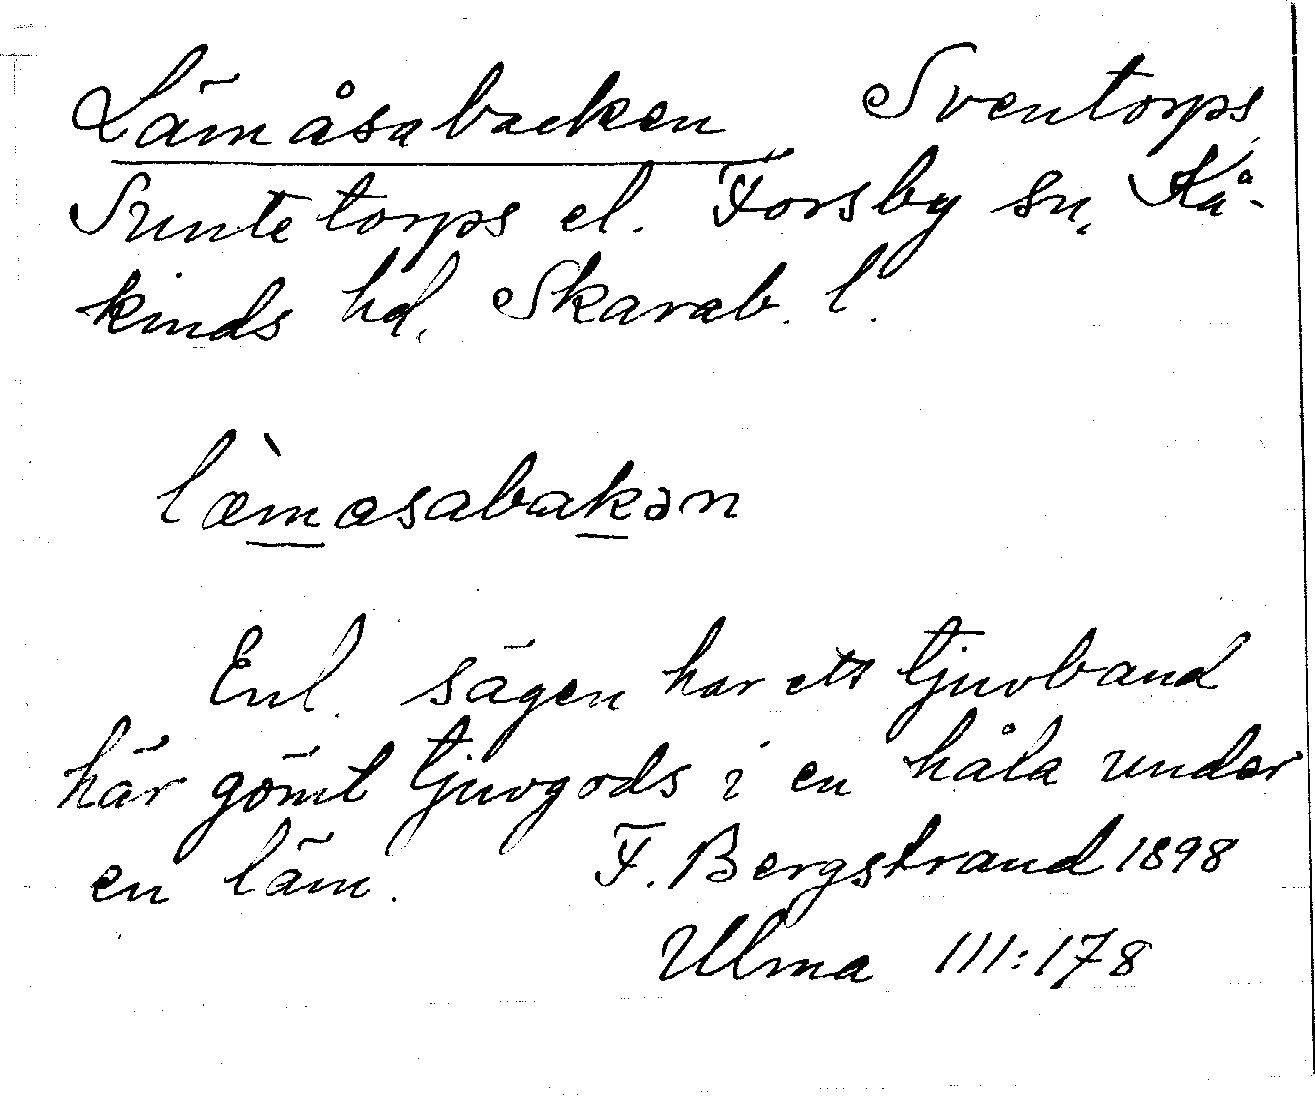 Lämåsabacken Sventorps,
Suntetorps el. Forsby sn, Kå-
kinds hd, Skarab. l.
læ̀masabakən
Enl. sägen har ett tjuvband
här gömt tjuvgods i en håla under
en läm. F. Bergstrand 1898
Ulma 111:178